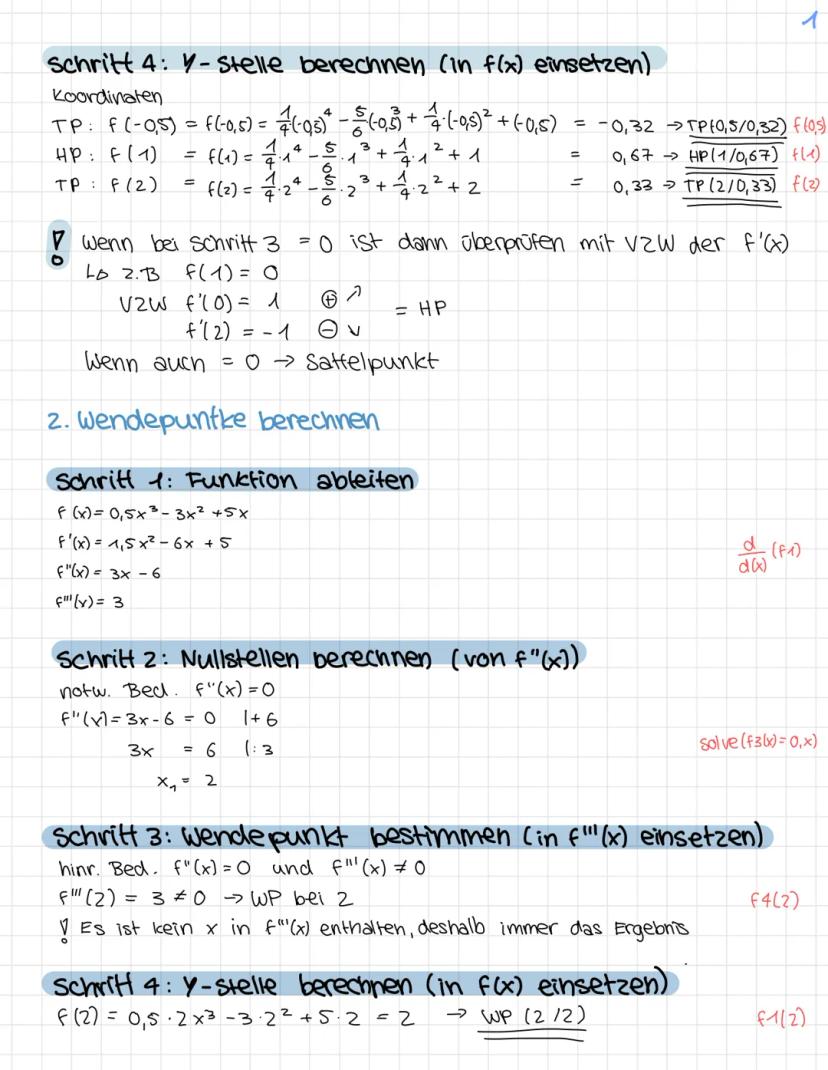 1
Schritt 4: Y-Stelle berechnen (in f(x) einsetzen)
Koordinaten
TP: f(-0,5) = f(-0,5) = 1/4(-0,5)^4 - 5/6(-0,5)^3 + 1/4·(-0,5)^2 + (-0,5) = -0,32 → TP(0,5/0,32) f(0,5)
HP: f(1) = f(1) = 1/4·1^4 - 5/6·1^3 + 1/4·1^2 + 1 = 0,67 → HP(1/0,67) f(1)
TP: f(2) = f(2) = 1/4·2^4 - 5/6·2^3 + 1/4·2^2 + 2 = 0,33 → TP(2/0,33) f(2)
! Wenn bei Schritt 3 = 0 ist dann überprüfen mit VZW der f'(x)
↳ z.B f(1) = 0
VZW f'(0) = 1 ⊕ ↗
= HP
f'(2) = -1 ⊖ ↘
Wenn auch = 0 → Sattelpunkt
2. Wendepuntke berechnen
Schritt 1: Funktion ableiten
f(x) = 0,5x³ - 3x² + 5x
f'(x) = 1,5x² - 6x + 5
d/d(x) (f1)
f''(x) = 3x - 6
f'''(x) = 3
Schritt 2: Nullstellen berechnen (von f''(x))
notw. Bed. f''(x) = 0
f''(x) = 3x - 6 = 0 |+6
3x = 6 |:3
solve(f3(x)=0,x)
x₁ = 2
Schritt 3: Wendepunkt bestimmen (in f'''(x) einsetzen)
hinr. Bed. f''(x) = 0 und f'''(x) ≠ 0
f'''(2) = 3 ≠ 0 → WP bei 2 f4(2)
! Es ist kein x in f'''(x) enthalten, deshalb immer das Ergebnis
Schritt 4: Y-Stelle berechnen (in f(x) einsetzen)
f(2) = 0,5·2x³ - 3·2² + 5·2 = 2 → WP (2/2) f1(2)